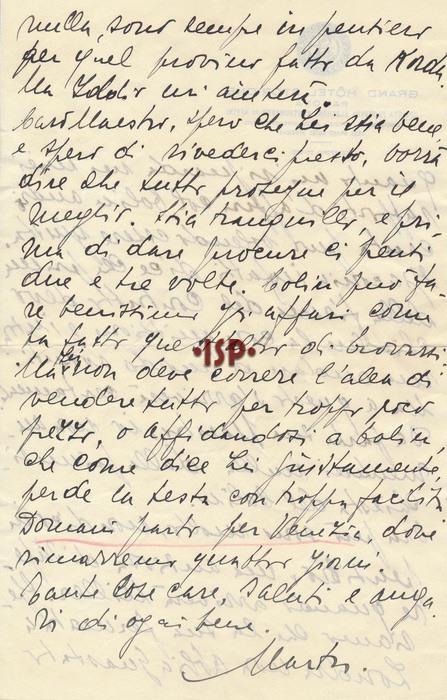 nulla, sono sempre in pensiero
per quel provino fatto da Korda.
Ma Iddio mi aiuterà.
Caro Maestro, spero che Lei stia bene
e spero di rivederci presto, vorrà
dire che tutto prosegue per il
meglio. Stia tranquillo, e pri-
ma di dare procure ci pensi
due e tre volte. Colin può fa-
re benissimo gli affari come
ha fatto di trovarsi
Ma Lei non deve correre l'alea di
vendere tutto per troppo poco
prezzo, o affidandosi a Colin,
che come dice Lei giustamente
perde la testa con troppa facilità
Domani parto per Venezia, dove
rimarremo quattro giorni.
Tante cose care, saluti e augu-
ri di ogni bene.
ISP
GRAND HOTEL